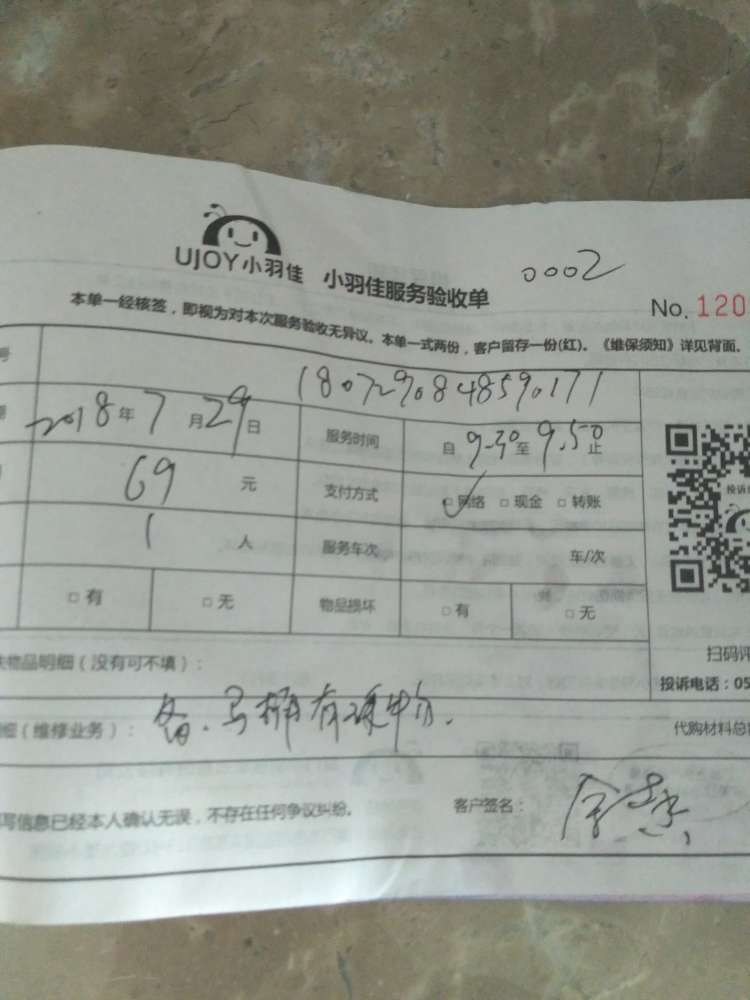 UJOY小羽佳 小羽佳服务验收单 0002
No. 120
本单一经核签，即视为对本次服务验收无异议。本单一式两份，客户留存一份(红)。《维保须知》详见背面。
号 1807290848590171
2018年7月29日 服务时间 自9-30至9.50止
69元 支付方式 □网络 □现金 □转账
1人 服务车次 车/次
□有 □无 物品损坏 □有 □无
投诉
扫码评
物品明细（没有可不填）：
投诉电话：05
细（维修业务）： 备.马桶有硬物.
代购材料总
写信息已经本人确认无误，不存在任何争议纠纷。 客户签名：